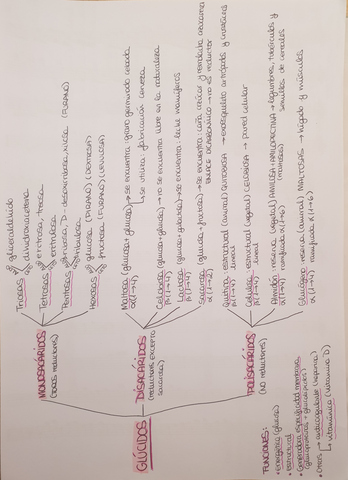 GLÚCIDOS
MONOSACÁRIDOS
(TODOS reductores)
Triosas
gliceraldehído
dihidroxiacetona
Tetrosas
eritrosa, treosa
eritrulosa
Pentosas
ribosa, D-desoxirribosa, xilosa (FURANO)
ribulosa
Hexosas
glucosa (PIRANO) (DEXTROSA)
fructosa (FURANO) (LEVULOSA)
DISACÁRIDOS
(reductores EXCEPTO
sacarosa)
Maltosa (glucosa+glucosa) → se encuentra: grano germinado cebada
α(1→4)
↳ se utiliza: fabricación cerveza
Celobiosa (glucosa+glucosa) → no se encuentra libre en la naturaleza
β(1→4)
Lactosa (glucosa+galactosa) → se encuentra: leche mamíferos
β(1→4)
Sacarosa (glucosa+fructosa) → se encuentra: caña azúcar y remolacha azucarera
α(1→2)
ENLACE DICARBONÍLICO → no es reductor
POLISACÁRIDOS
(NO reductores)
Quitina estructural (animal) QUITOBIOSA → exoesqueleto artrópodos y crustáceos
β(1→4) lineal
Celulosa estructural (vegetal) CELOBIOSA → pared celular
β(1→4) lineal
Almidón reserva (vegetal) AMILOSA + AMILOPECTINA → legumbres, tubérculos y
α(1→4) ramificada α(1→6) (maltosas) semillas de cereales
Glucógeno reserva (animal) MALTOSAS → hígado y músculos
α(1→4) ramificada α(1→6)
FUNCIONES:
• energética (glucosa)
• estructural
(glucoproteínas + glucolípidos)
• Otras → anticoagulante (heparina)
↳ vitamínica (vitamina